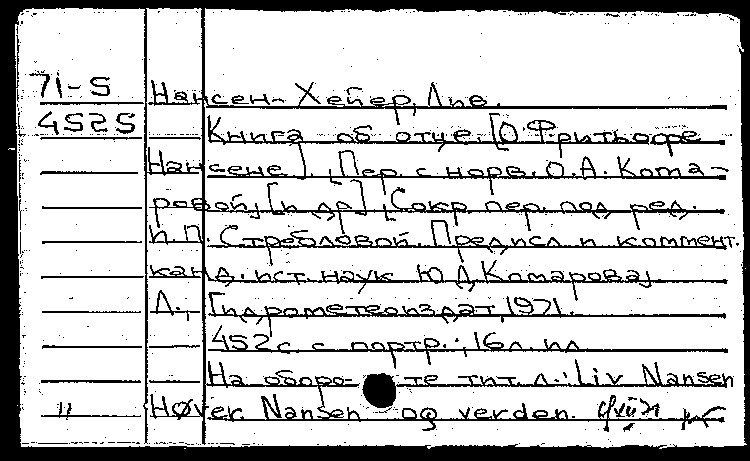 71-5 Нансен-Хейер, Лив.
4525 Книга об отце. [О Фритьофе
Нансене]. [Пер. с норв. О.А. Кома-
ровой, [и др]. [Сокр. пер. под ред.
И.П. Стребловой. Предисл и коммент.
канд. ист наук Ю Д Комарова]
Л., Гидрометеоиздат, 1971.
452 с. с портр.; 16 л. ил
На оборо- те тит. л.: Liv Nansen
" Høyer. Nansen og verden.